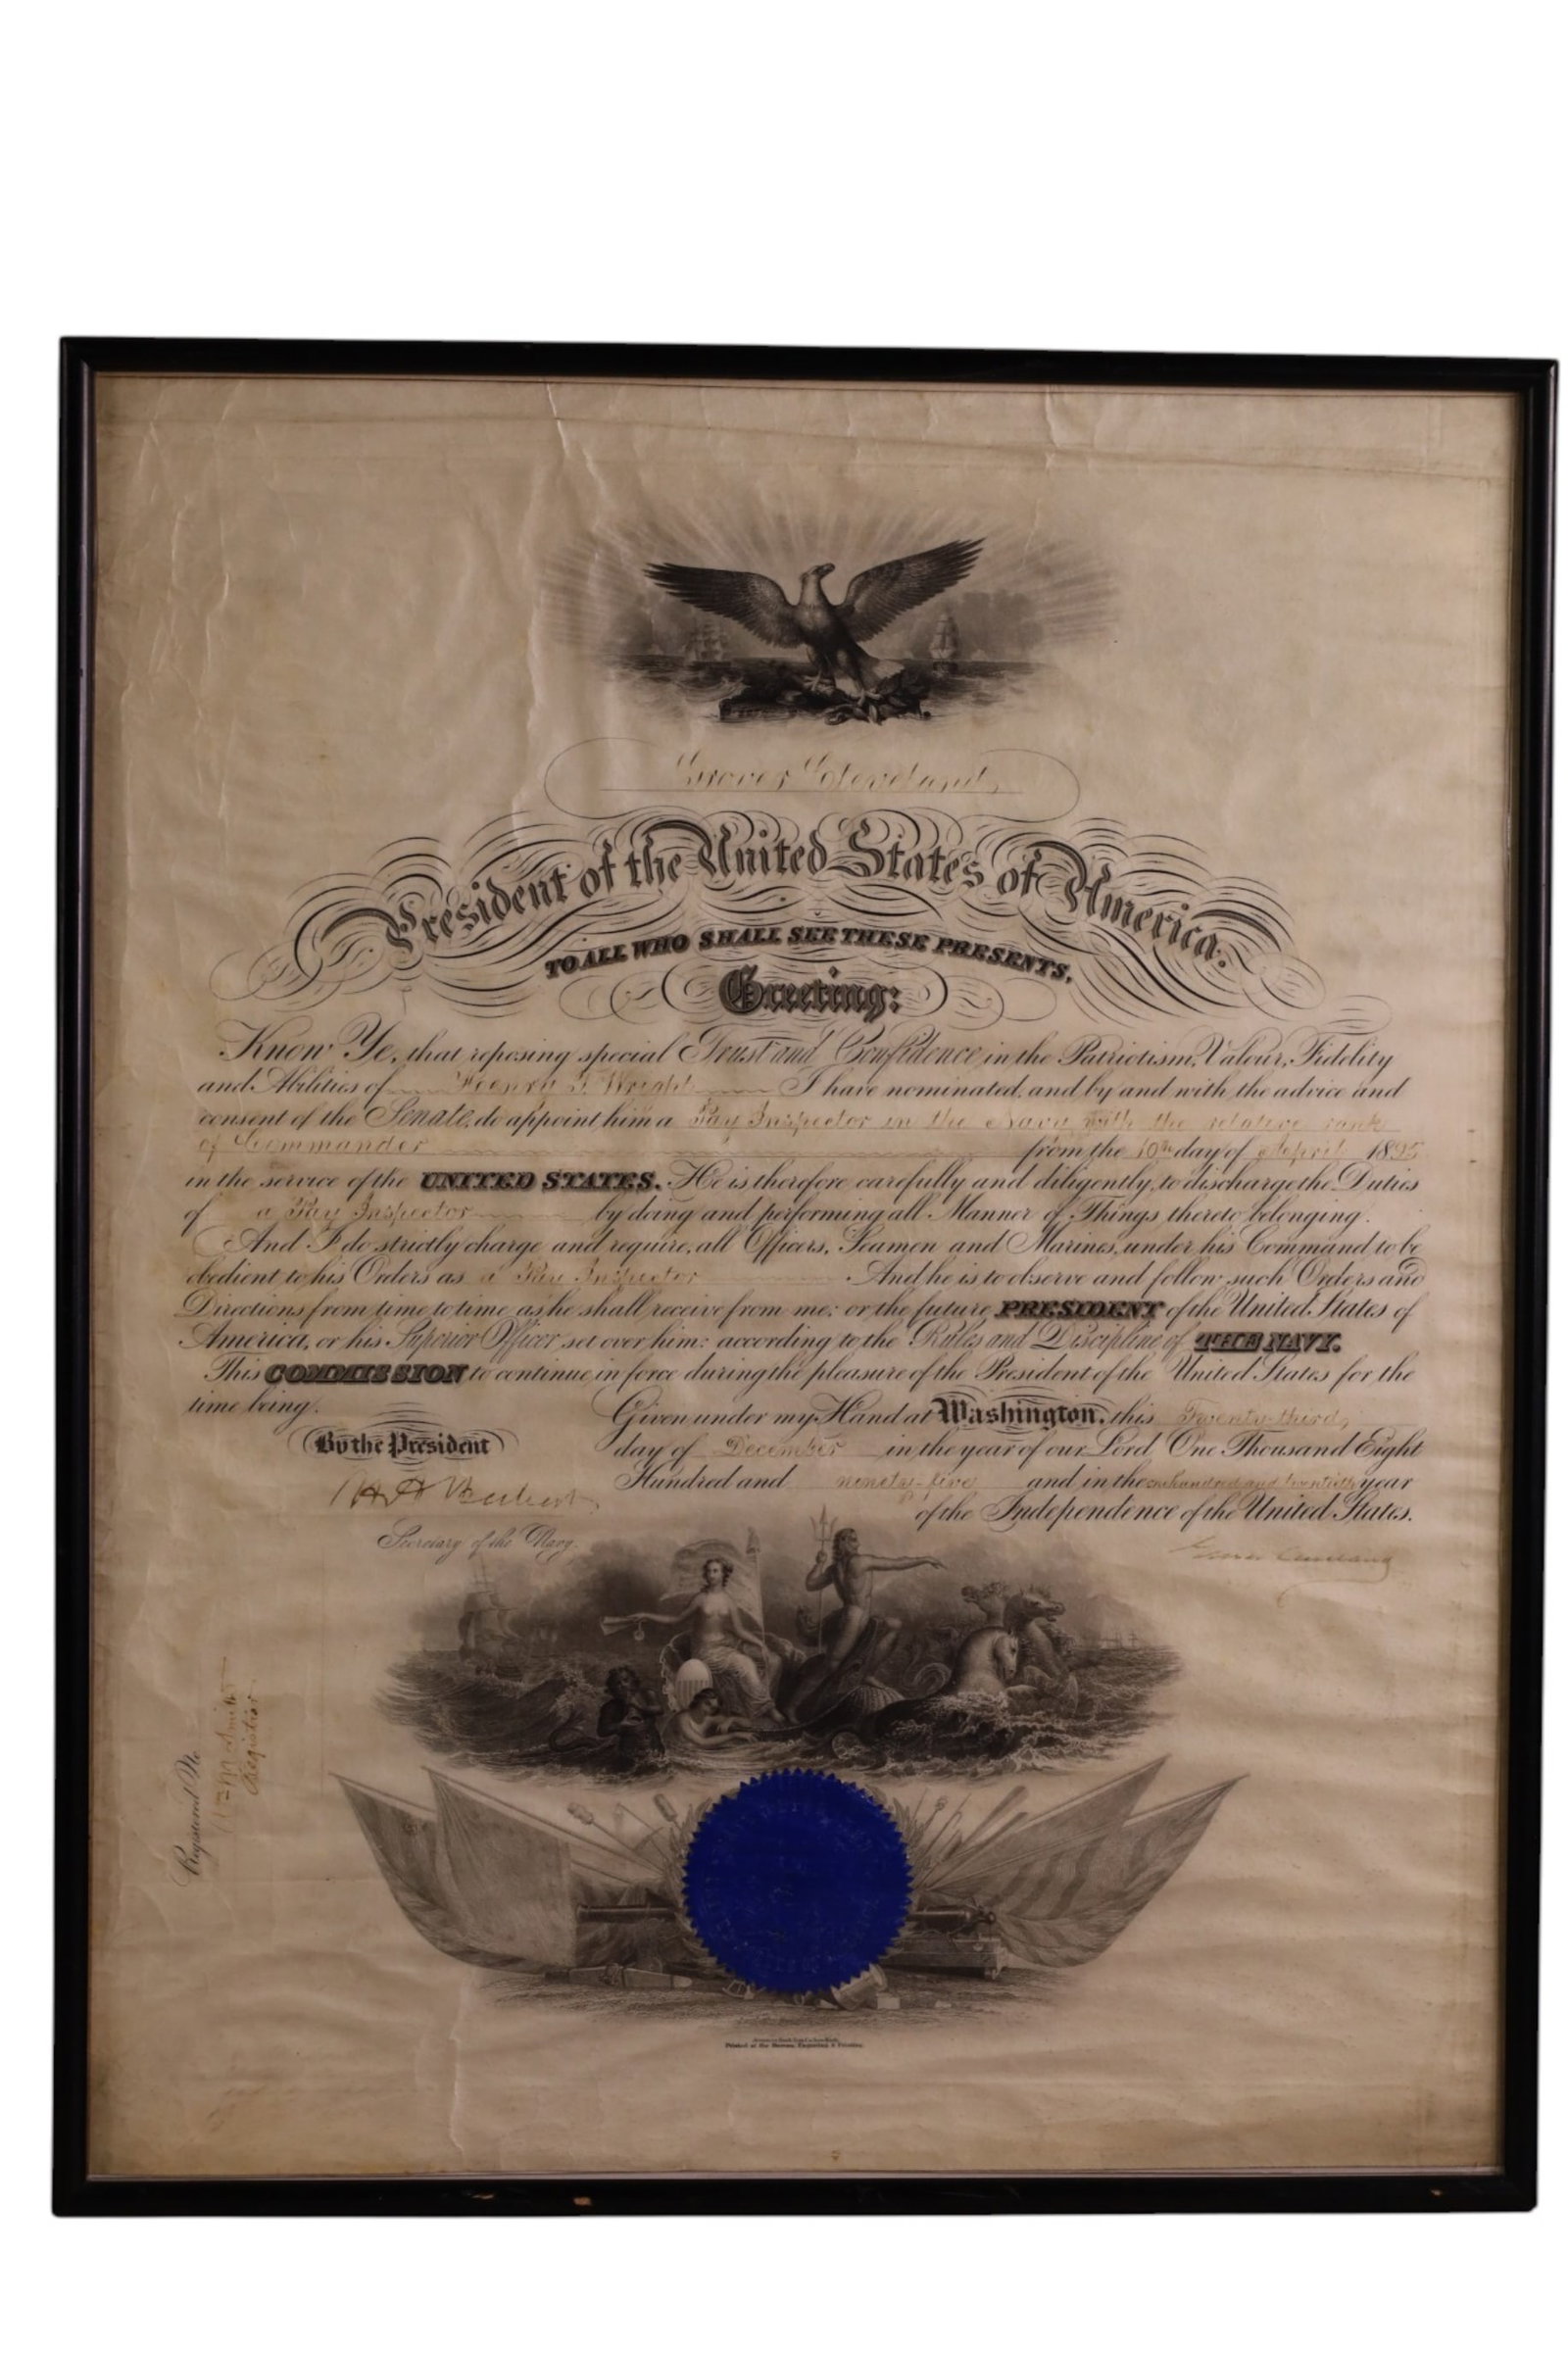 Grover Cleveland,
President of the United States of America.
TO ALL WHO SHALL SEE THESE PRESENTS,
Greeting:
Know Ye, that reposing special Trust and Confidence in the Patriotism, Valour, Fidelity
and Abilities of Henry T. Wright I have nominated, and by and with the advice and
consent of the Senate, do appoint him a Pay Inspector in the Navy with the relative rank
of Commander from the 10th day of April 1895
in the service of the UNITED STATES. He is therefore carefully and diligently, to discharge the Duties
of a Pay Inspector by doing and performing all Manner of Things thereto belonging.
And I do strictly charge and require, all Officers, Seamen and Marines, under his Command to be
obedient to his Orders as a Pay Inspector And he is to observe and follow such Orders and
Directions from time to time as he shall receive from me; or the future PRESIDENT of the United States of
America, or his Superior Officer set over him: according to the Rules and Discipline of THE NAVY.
This COMMISSION to continue in force during the pleasure of the President of the United States for the
time being.
Given under my Hand at Washington, this Twenty-third,
By the President
day of December in the year of our Lord, One Thousand Eight
Hundred and ninety-five and in the one hundred and twentieth year
H A Herbert
of the Independence of the United States.
Secretary of the Navy.
Grover Cleveland
Registered No
Register
Printed at the Bureau, Engraving & Printing.